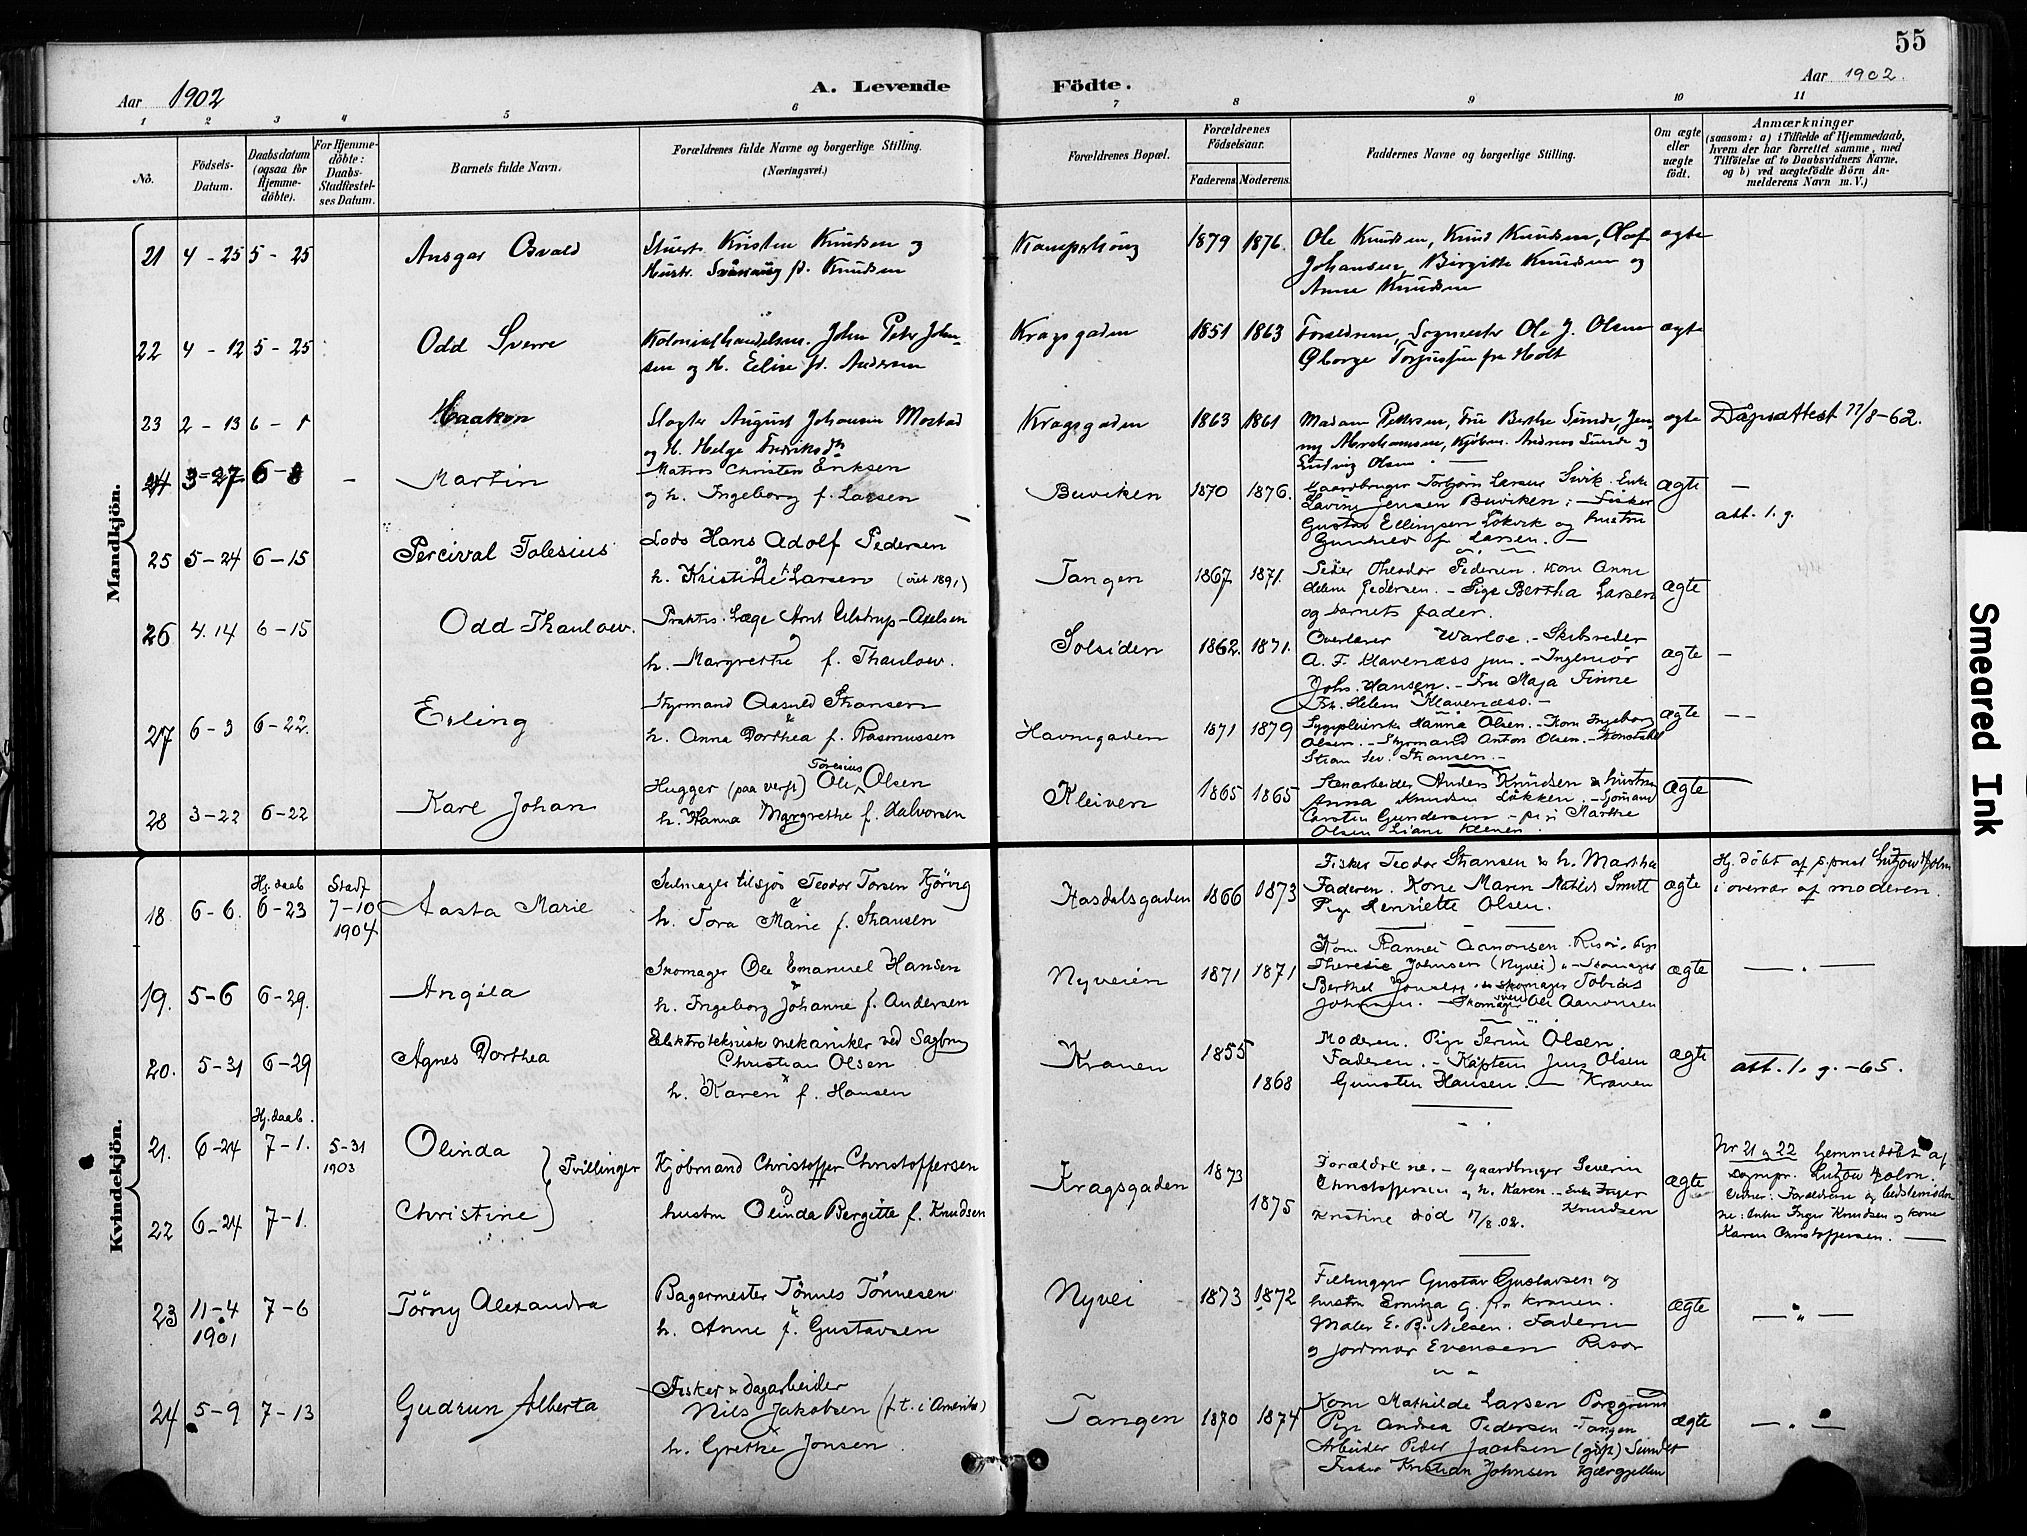 55
Aar 1902
A. Levende
Födte.
Aar 1902.
1 2 3 4 5 6 7 8 9 10 11
No.
Födsels-
Datum.
Daabsdatum
(ogsaa for
Hjemme-
döbte).
For Hjemme-
döbte:
Daabs-
Stadfæstel-
ses Datum.
Barnets fulde Navn.
Forældrenes fulde Navne og borgerlige Stilling.
(Næringsvei.)
Forældrenes Bopæl.
Forældrenes
Födselsaar.
Faderens.
Moderens.
Faddernes Navne og borgerlige Stilling.
Om ægte
eller
uægte
födt.
Anmærkninger
(saasom: a) i Tilfælde af Hjemmedaab,
hvem der har forrettet samme, med
Tilföielse af to Daabsvidners Navne,
og b) ved uægtefödte Börn An-
melderens Navn m. V.)
Mandkjön.
21 4-25 5-25 Ansgar Osvald
Stuert Kristen Knudsen og
Hustr. f. Knudsen
1879 1876.
Ole Knudsen, Knud Knudsen, Olaf
Johansen, Birgitte Knudsen og
Anne Knudsen
ægte
22 4-12 5-25 Odd Sverre
John Peter John-
sen og H. Eline f. Andersen
Kragsgaden 1851 1863
Forældrene, Ole J. Olsen
fra Holt
ægte
23 2-13 6-1 Haakon
Slagter August Johansen Mostad
og H. Helga
Kragsgaden 1863 1861
Madam Pettersen, Fru Berthe Sunde, Jen-
ny Abrahamsen, Kjøbm. Andreas Sunde og
Ludvig Olsen
ægte Dåpsattest 11/8-62.
24 3-27 6-8 - Martin
Matros Christen Eriksen
og h. Ingeborg f. Larsen
Buviken 1870 1876.
Gaardbruger Torbjørn Larsen Sivik. Enke
Lavine Jensen Buviken. - Fisker
Gustav Ellingsen Løkvik og hustru
Gunhild f. Larsen. -
ægte -
att. 1. g.
25 5-24 6-15 Percival Tolesius
Lods Hans Adolf Pedersen
og
h. Kristine Larsen (viet 1891)
Tangen 1867 1871.
Peder Theodor Pedersen. Kone Anne
Helene Pedersen. - Pige Bertha Larsen
og barnets fader.
ægte
26 4.14 6-15 Odd Thaulow.
Praktis. Læge Arnt Ulstrup-Axelsen
og
h. Margrethe f. Thaulow.
Solsiden 1862. 1871.
Overlærer Warloe. - Skibsreder
A. F. Klavenæss jun. - Ingeniør
Johs. Hansen. - Fru Maja Finne
Frk. Helene Klavenæss. -
ægte -
27 6-3 6-22. Erling
Styrmand Aasuld Stiansen
&
h. Anna Dorthea f. Rasmussen
Havnegaden 1871 1879
Hanna Olsen. - Kone Ingeborg
Olsen. - Styrmand Anton Olsen. - Konstabel
Stian Sev. Stiansen. -
ægte --
28 3-22 6-22 Karl Johan
Hugger (paa verft) Ole Toresius Olsen
h. Hanna Margrethe f. Halvorsen
Kleiven 1865 1865
Stenarbeider Anders Knudsen & hustru
Anna Knudsen Løkken. - Sømand
Carsten Gundersen - pige Marthe
Olsen
ægte
Kvindekjön.
18. 6-6.
Hj. daab
6-23
Stadf
7-10
1904
Aasta Marie
Seilmager tilsjøs Teodor Torsen Kjøring
&
h. Tora Marie f. Stiansen
Hasdalsgaden 1866 1873
Fisker Teodor Stiansen & h. Marthe
Faderen. Kone Maren Mathis Smitt
Pige Henriette Olsen.
ægte
Hj. døbt af s.prest Lützow Holm
i overvær af moderen.
19. 5-6 6-29. Angéla
Skomager Ole Emanuel Hansen
&
h. Ingeborg Johanne f. Andersen
Nyveien 1871 1871
Kone Rannei Aamonsen. Risør. Pige
Theresie Johnsen (Nyvei). - Skomager
Berthel Jonsen. - skomager Tobias
Johnsen. - Skomager svend Ole Aamonsen
ægte
20. 5-31 6-29 Agnes Dorthea
Elektroteknisk mekaniker ved Sagbrug
Christian Olsen
&
h. Karen f. Hansen
Kranen 1855
1868
Moderen. Pige Serine Olsen.
Faderen. - Kaptein Jens Olsen
Gunsten Hansen. - Kranen
ægte
att. 1. g. -65.
21. 6-24
Hj. daab.
7-1.
5-31
1903
Olinda
Tvillinger
Kjøbmand Christoffer Christoffersen
og
Kragsgaden 1873
Forældrene. - Gaardbruger Severin
Christoffersen og h. Karen. - Enke Inger
Knudsen
ægte
Nr 21 & 22 hjemmedøbt af
Sognepr. Lützow Holm.
Vidner: Forældrene og bedstemødre-
ne: Enke Inger Knudsen og kone
Karen Christoffersen. -
22 6-24 7-1. Christine
hustru Olinda Bergitte f. Knudsen
1875
Kristine død 17/8.02.
23 11-4
1901
7-6 Törny Alexandra
Bagermester Tönnes Tönnesen
&
h. Anne f. Gustavsen
Nyvei 1873 1872
Filhugger Gustav Gustavsen og
hustru Erniza G. fra Kranen.
Maler E. B. Nilsen. Faderen
og jordmor Evensen Risør
ægte - " -
24 5-9 7-13 Gudrun Alberta
Fisker & dagarbeider
Nils Jakobsen (f.t. i Amerika)
h. Grethe Jonsen.
Tangen 1870 1874
Kone Mathilde Larsen Porsgrund
Pige Andrea Pedersen - Tangen
Arbeider Peder Jacobsen (gift) Sundet
Fisker Kristian Johnsen
ægte - " -
Smeared Ink